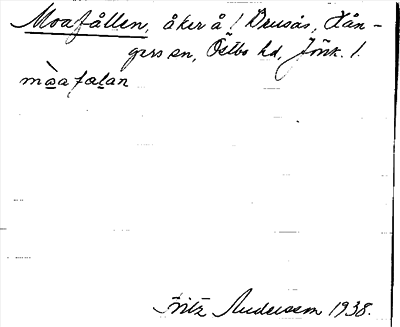 Moafållen, åker å! Drusås, Hån-
gers sn, Östbo hd, Jönk. l.
mòa fælan
Fritz Andersson 1938.